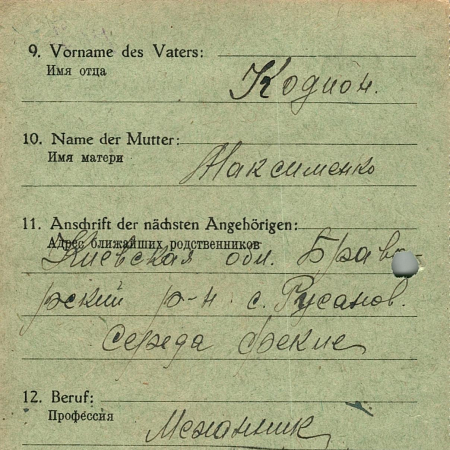 9. Vorname des Vaters:
Имя отца
Кодион.
10. Name der Mutter:
Имя матери
Максименко
11. Anschrift der nächsten Angehörigen:
Адрес ближайших родственников
Киевская обл. Брава-
рский р-н с. Русанов.
Середа
12. Beruf:
Профессия
Механник